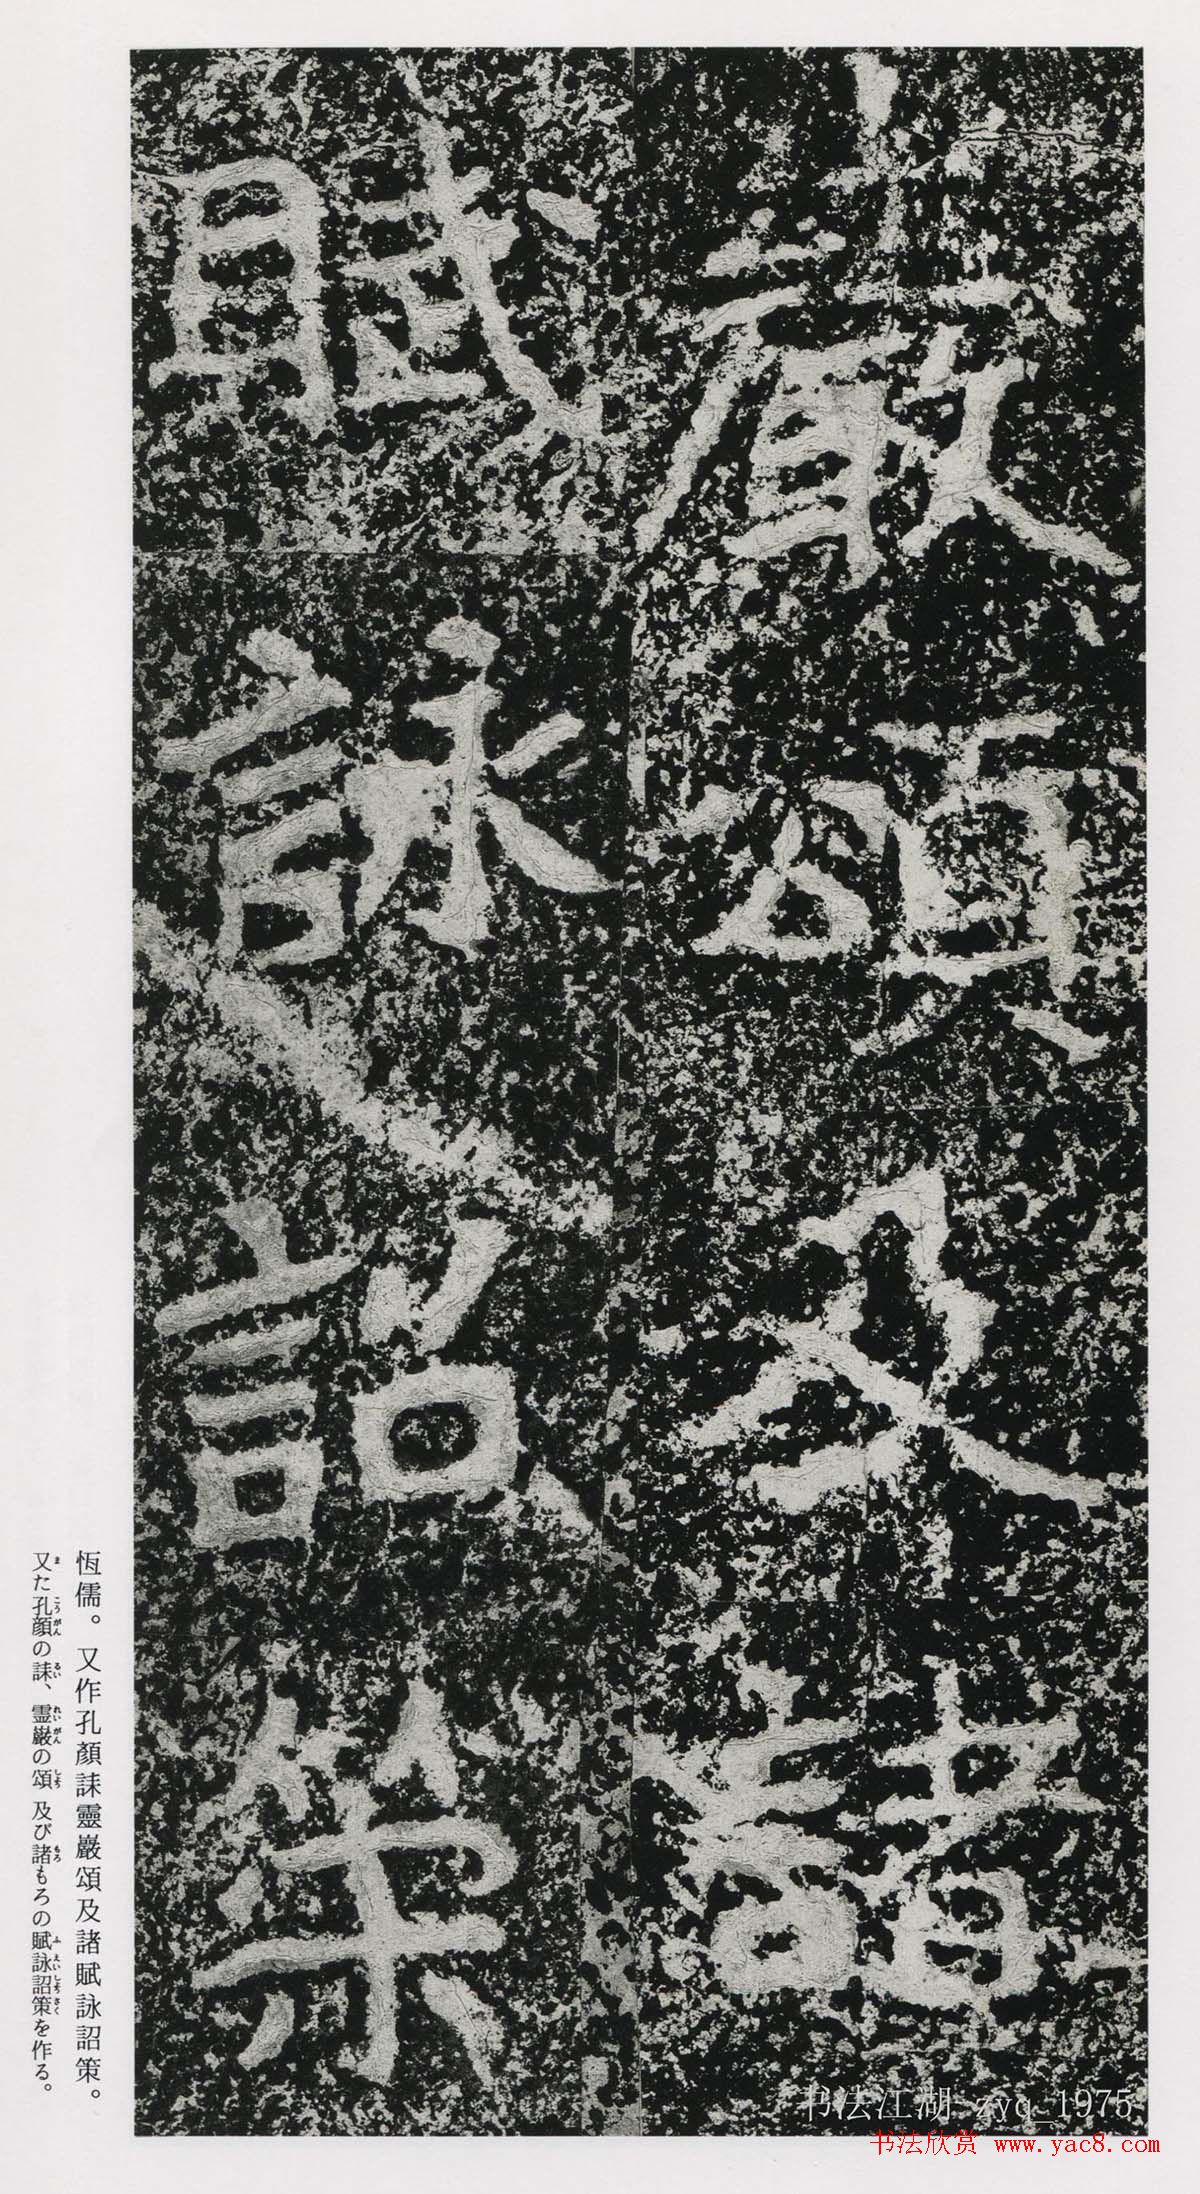 巖頌及諸
賦詠詔策
恆儒。又作孔顏誄靈巖頌及諸賦詠詔策。
又た孔顔の誄、霊巌の頌 及び諸もろの賦詠詔策を作る。
书法江湖 zyq_1975
书法欣赏 www.yac8.com